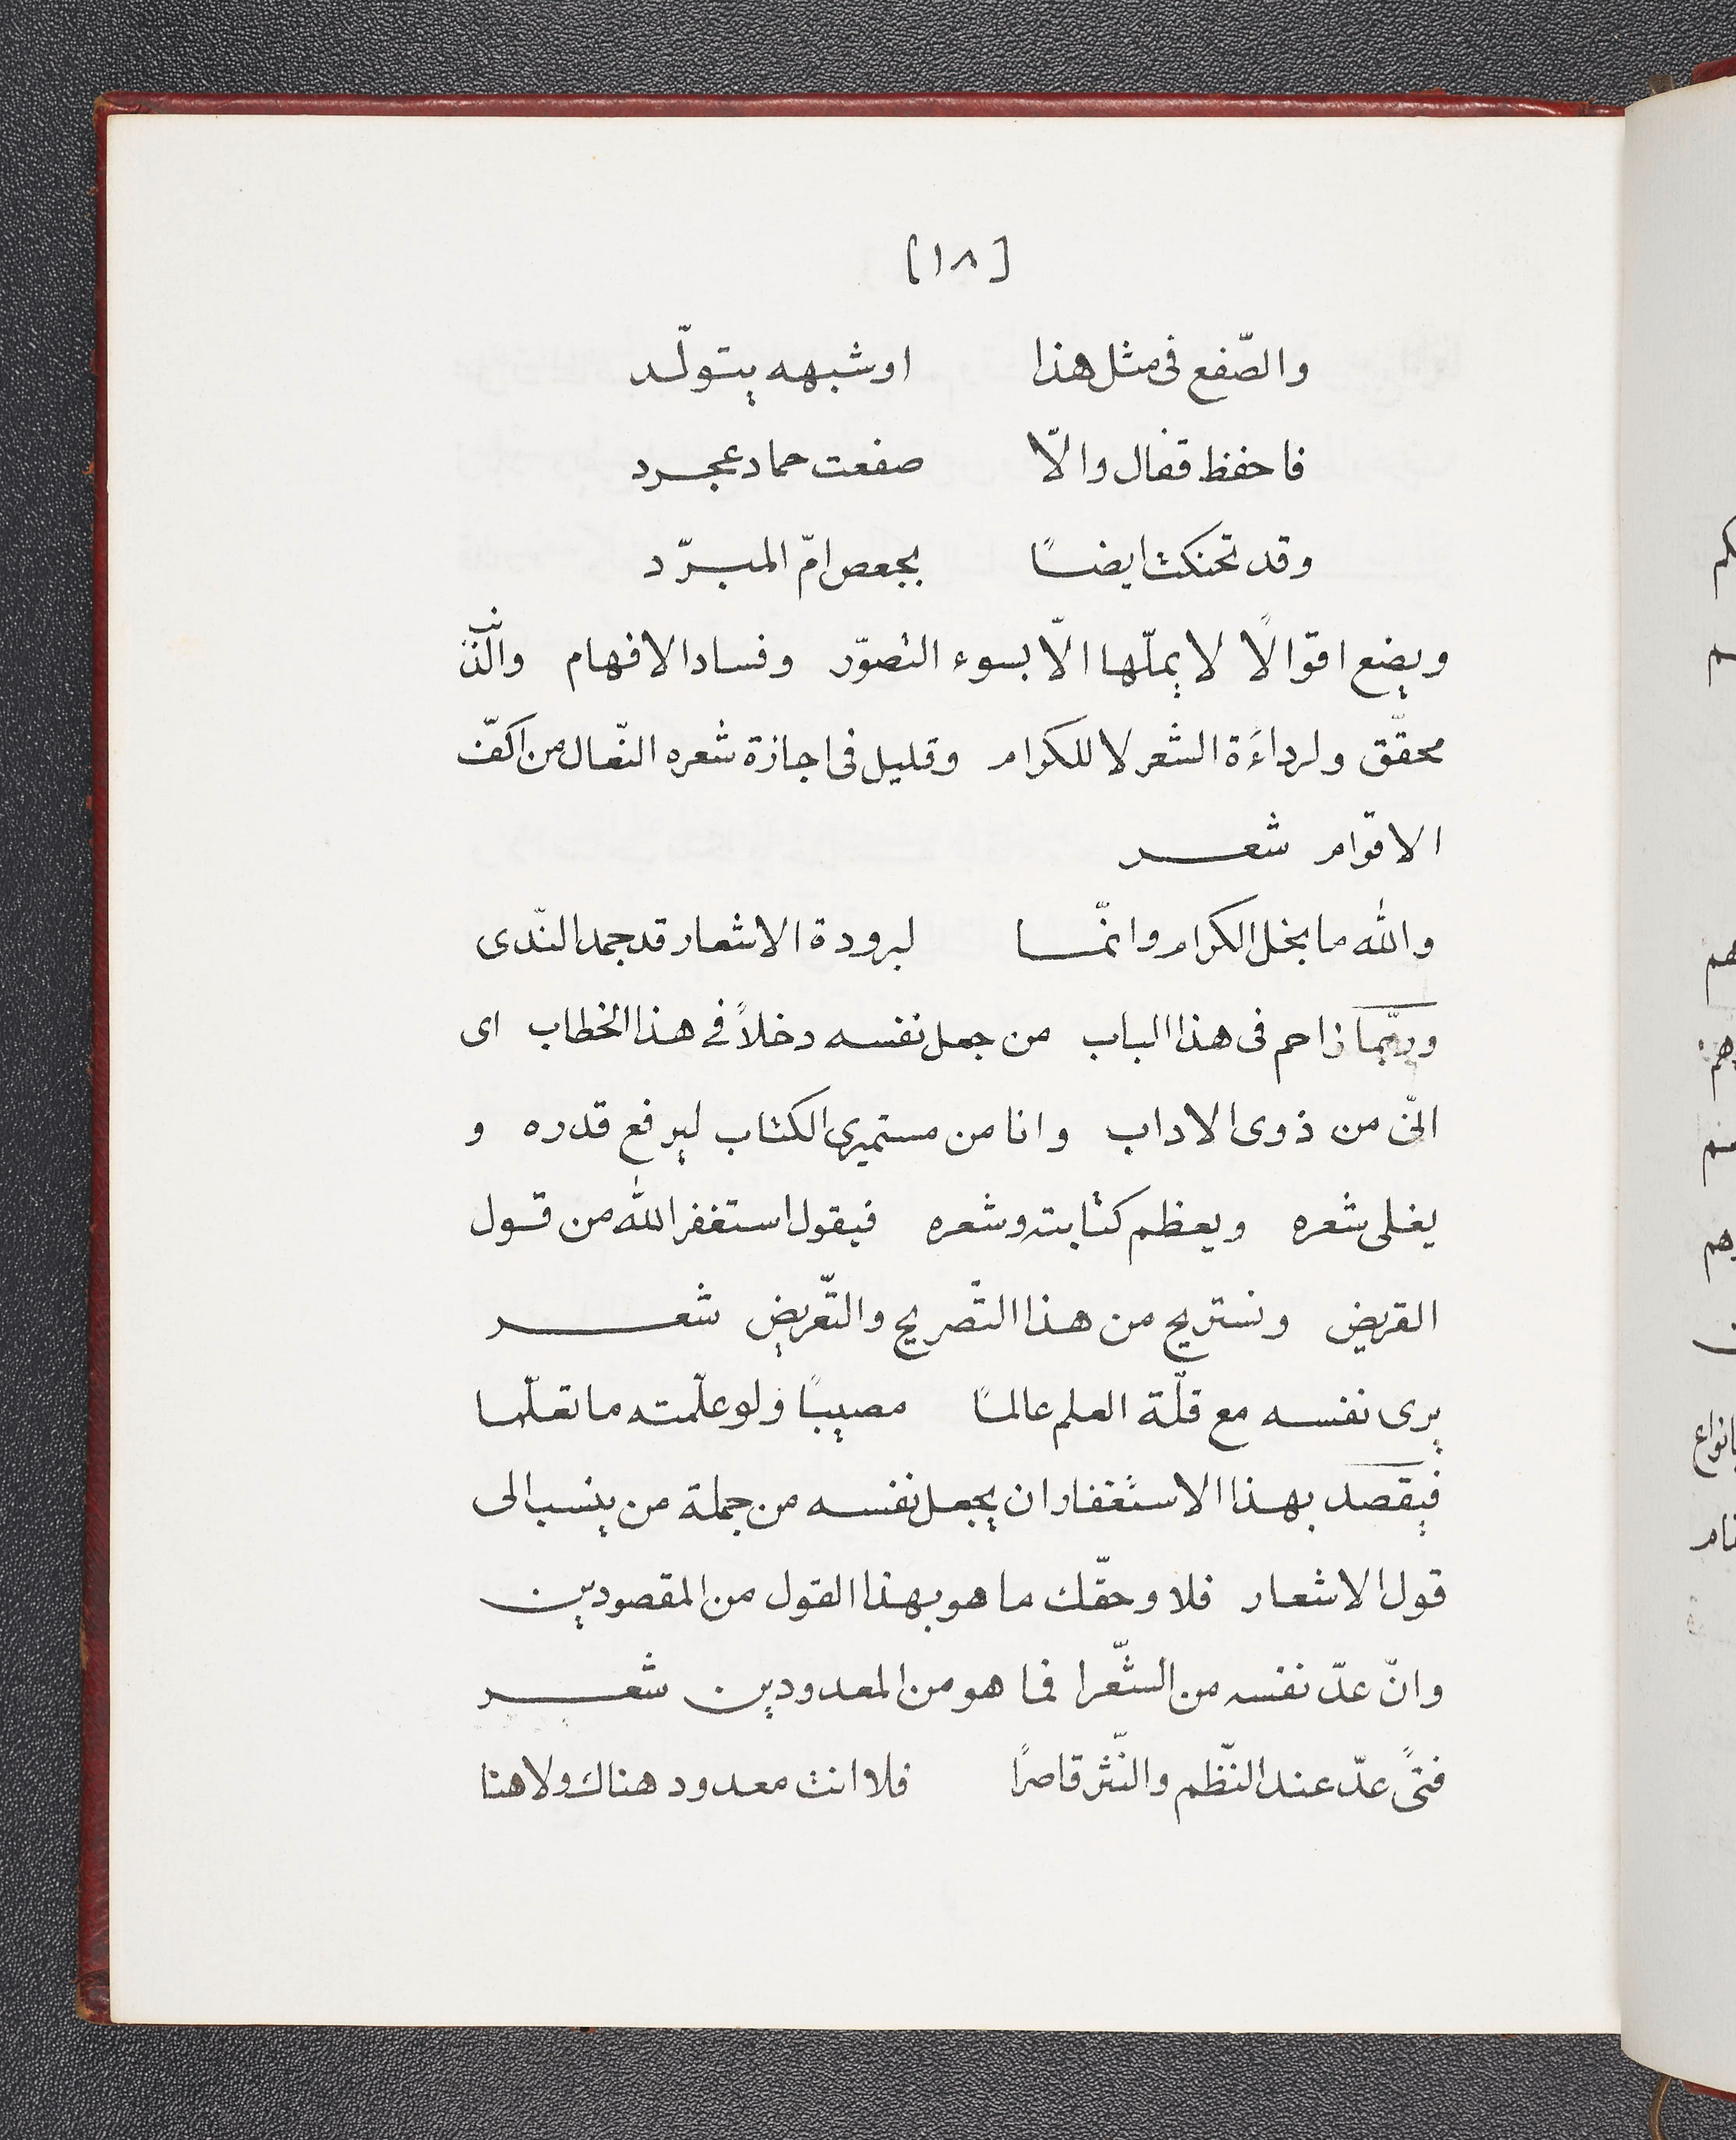 [١٨]
والصّفع فى مثل هذا اوشبهه يتولّد
فاحفظ قفال والّا صفعت حماد عجرد
وقد تحنكت ايضًا بجعص امّ المبرّد
ويضع اقوالًا لا يملّها الّا بسوء التصوّر وفساد الافهام والذنب
محقّق ولرداءَة الشعر لا للكرام وقليل فى اجازة شعره النّعال من اكفّ
الاقوام شعر
والله ما بخل الكرام وانّما لبرودة الاشعار قد جمد النّدى
وربّما زاحم فى هذا الباب من جعل نفسه دخلاً فى هذا الخطاب اى
انّى من ذوى الاداب وانا من مستميرى الكتاب ليرفع قدره و
يغلى شعره ويعظم كتابته وشعره فيقول استغفر الله من قول
القريض ونستريح من هذا التّصريح والتّعريض شعر
يرى نفسه مع قلّة العلم عالمًا مصيبًا ولو علّمته ما تعلّما
فيقصد بهذا الاستغفار ان يجعل نفسه من جملة من ينسب الى
قول الاشعار فلا وحقّك ما هو بهذا القول من المقصودين
وانّ عدّ نفسه من الشّعرا فما هو من المعدودين شعر
فتىً عدّ عند النّظم والنّثر قاصرًا فلا انت معدود هناك ولا هنا